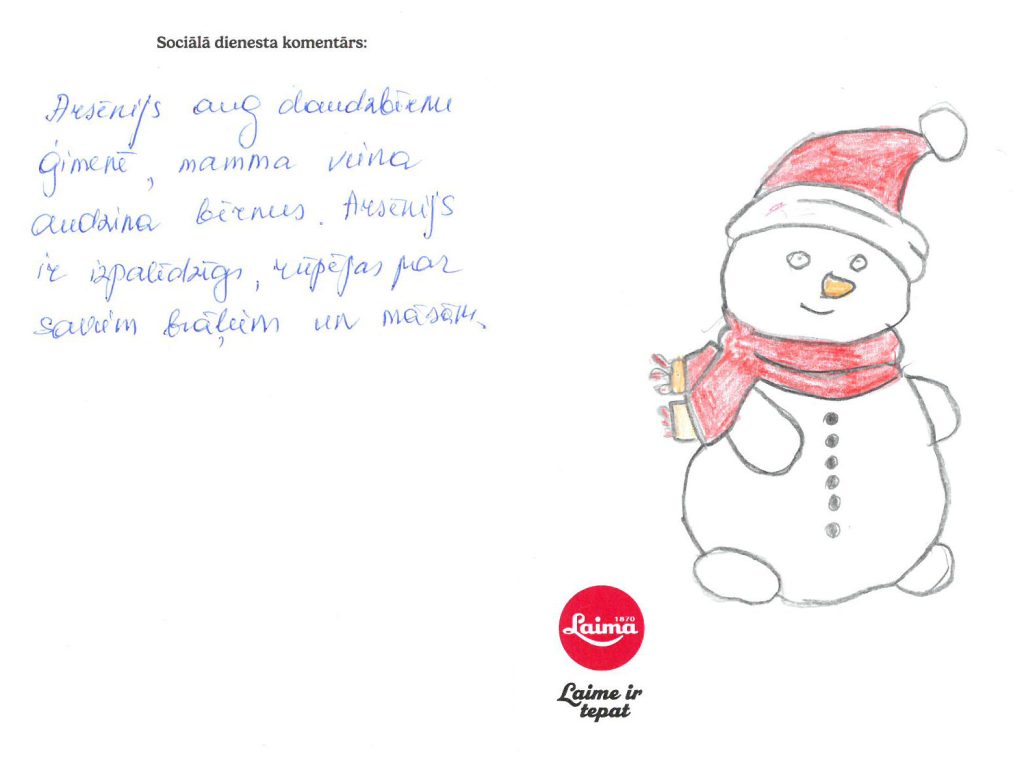 Sociālā dienesta komentārs:
Arsēnijs aug daudzbērnu
ģimenē, mamma viena
audzina bērnus. Arsēnijs
ir izpalīdzīgs, rūpējas par
saviem brāļiem un māsām.
Laima
1870
Laime ir
tepat